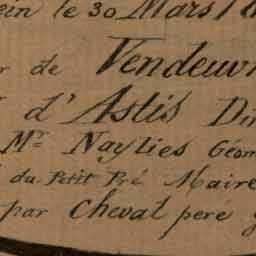 le 30 Mars
de Vendeuvr
d'Astis Di
Mr Naylies Géom
du Petit Pré Maire
par Cheval pere g